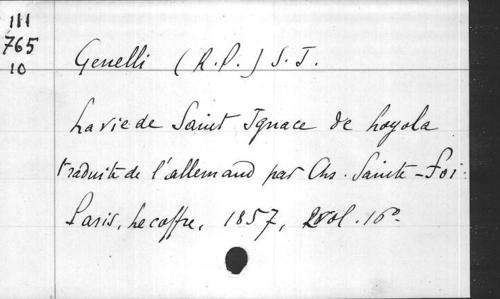 111
765
10
Genelli (R.P.) S.J.
La vie de Saint Ignace de Loyola
traduite de l'allemand par Chs. Sainte-Foi.
Paris, Lecoffre, 1857, 2 vol. 16º.